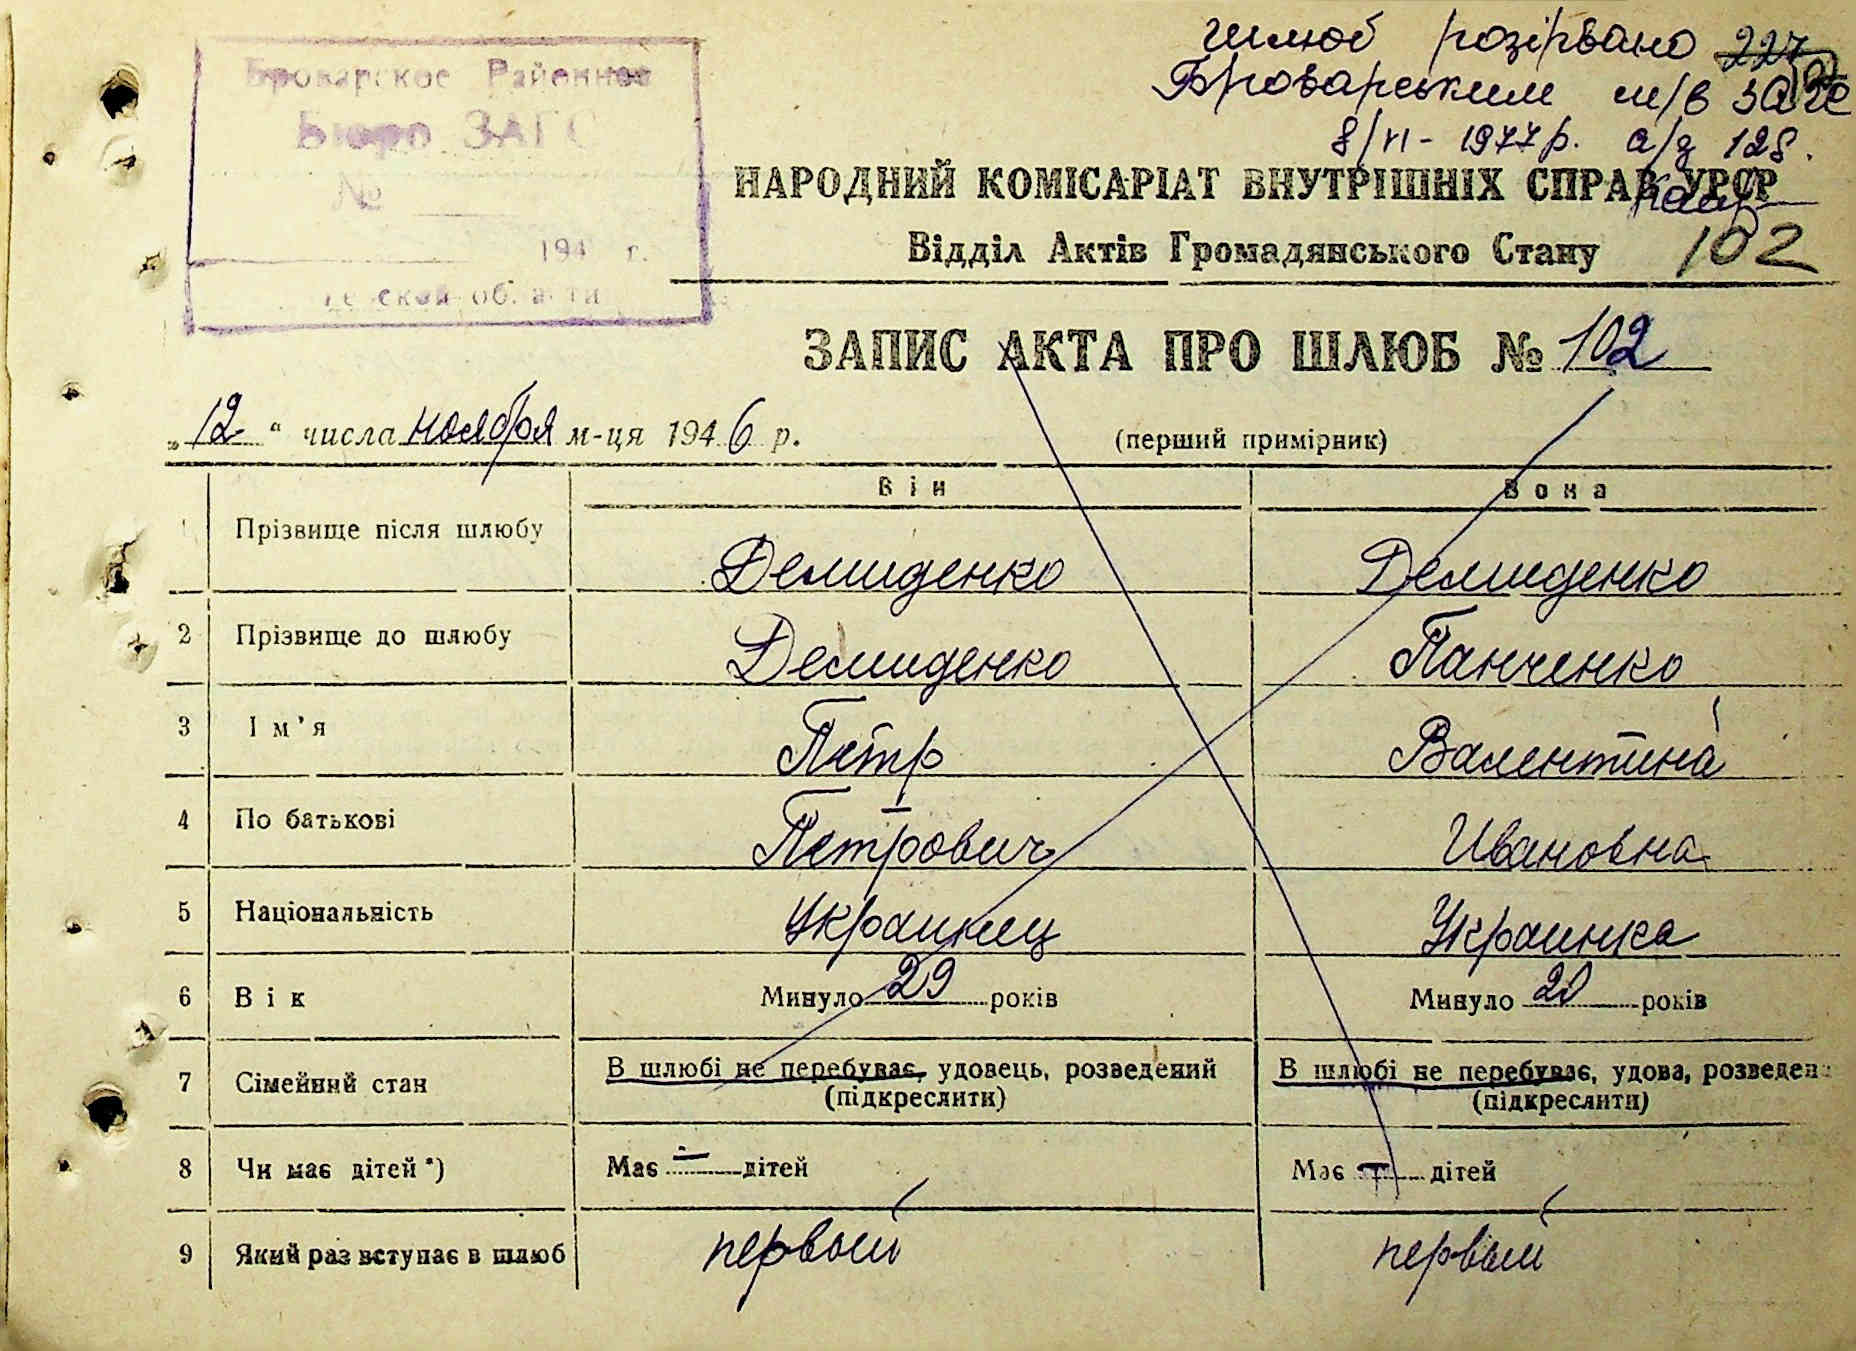 шлюб розірвано 227
Броварським м/в ЗАГС
8/VI - 1977р. а/з 128.
Броварское Районное
Бюро ЗАГС
№
194 г.
НАРОДНИЙ КОМІСАРІАТ ВНУТРІШНІХ СПРАВ УРСР
Відділ Актів Громадянського Стану 102
ЗАПИС АКТА ПРО ШЛЮБ № 102
„12“ числа ноября м-ця 1946 р. (перший примірник)
Він Вона
1 Прізвище після шлюбу Демиденко Демиденко
2 Прізвище до шлюбу Демиденко Панченко
3 Ім'я Петр Валентина
4 По батькові Петрович Ивановна
5 Національність Украинец Украинка
6 Вік Минуло 29 років Минуло 20 років
7 Сімейний стан В шлюбі не перебуває, удовець, розведений В шлюбі не перебуває, удова, розведен
(підкреслити) (підкреслити)
8 Чи має дітей *) Має — дітей Має — дітей
9 Який раз вступає в шлюб первый первый